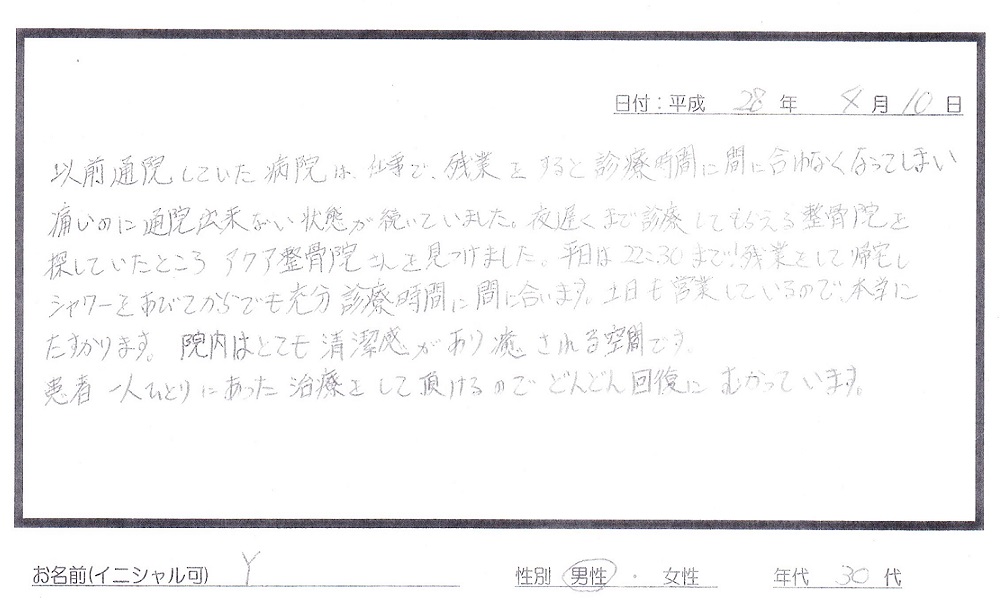 日付：平成 28 年 8 月 10 日
以前通院していた病院は、仕事で、残業をすると診療時間に間に合わなくなってしまい
痛いのに通院出来ない状態が続いていました。夜遅くまで診療してもらえる整骨院を
探していたところ アクア整骨院さんを見つけました。平日は22:30まで!残業をして帰宅し
シャワーをあびてからでも充分診療時間に間に合います。土日も営業しているので、本当に
たすかります。 院内はとても清潔感があり癒される空間です。
患者一人ひとりにあった治療をして頂けるのでどんどん回復にむかっています。
お名前(イニシャル可) Y 性別 男性 ・ 女性 年代 30 代